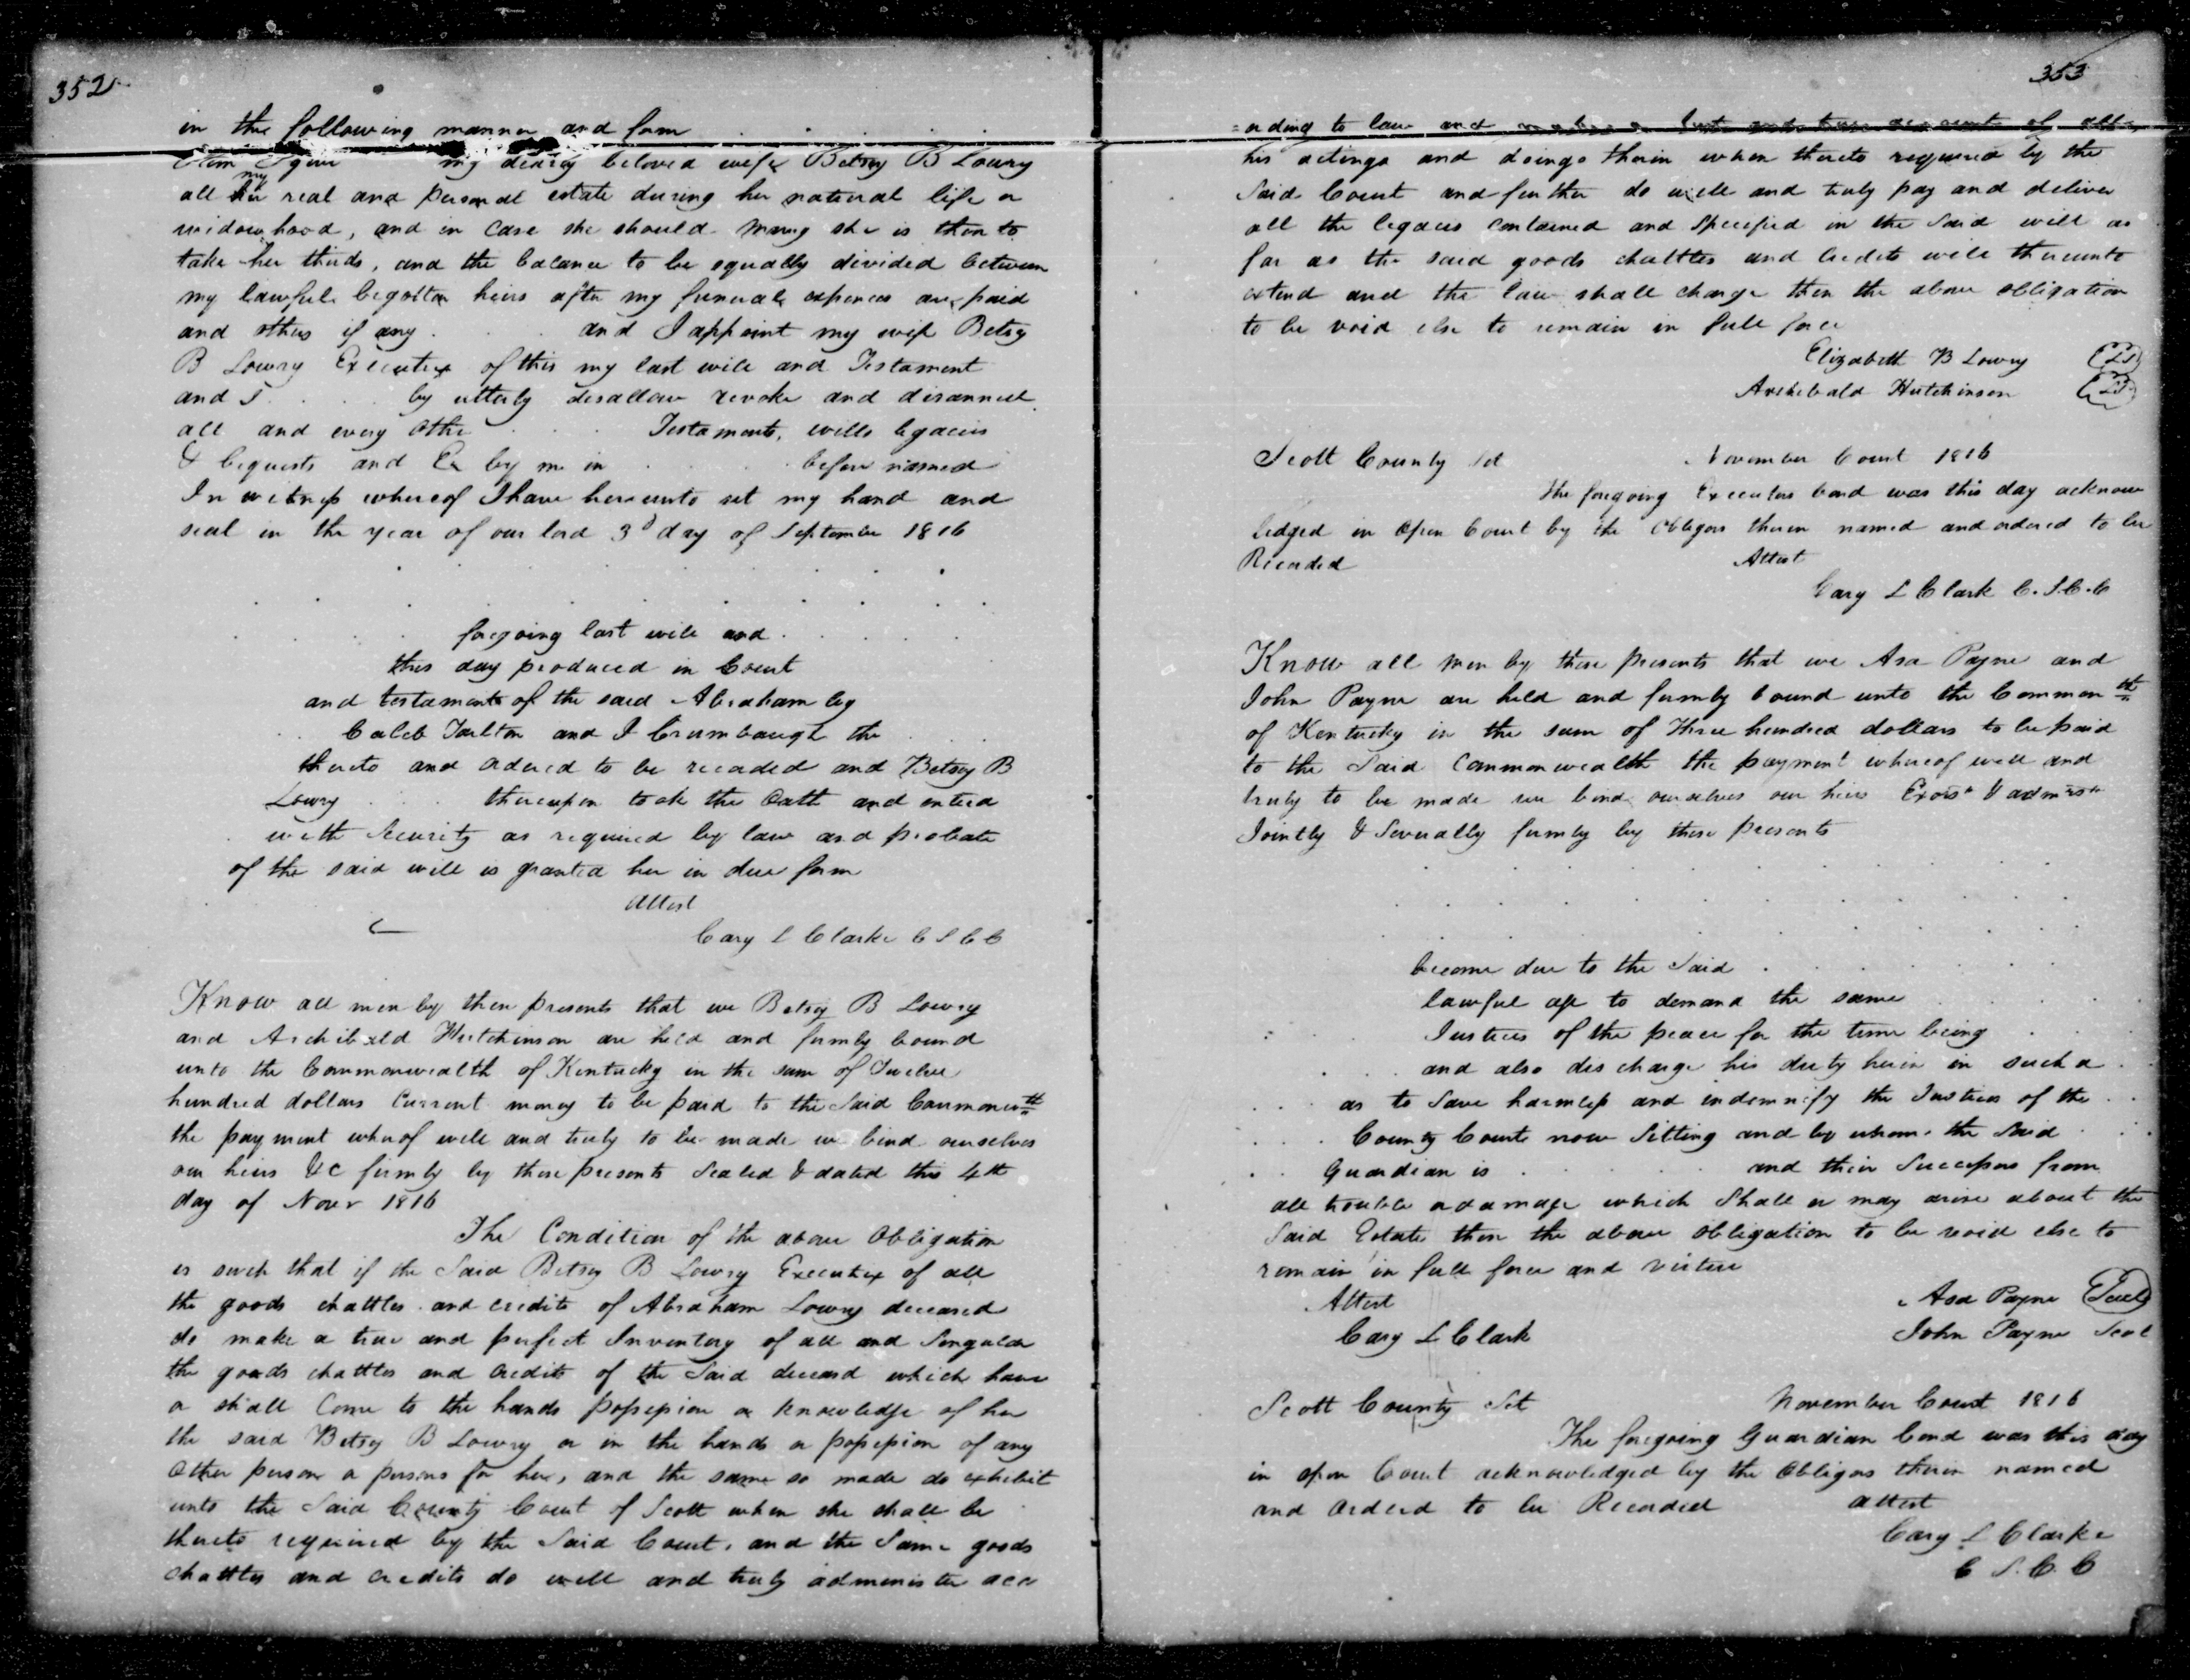 352
in the following manner and form . . . . .
Item I give my dearly beloved wife Betsy B Lowry
all her my real and personal estate during her natural life or
widowhood, and in case she should marry she is then to
take her thirds, and the balance to be equally divided between
my lawfull begotten heirs after my funeral expences are paid
and others if any . . . and I appoint my wife Betsy
B Lowry Executrix of this my last will and Testament
and I . . . . by utterly disallow revoke and disannul
all and every othe . . . Testaments, wills legacies
& bequests and Ex by me in . . . . before named
In witness whereof I have hereunto set my hand and
seal in the year of our lord 3d day of September 1816
foregoing last will and . . . . .
this day produced in Court
and testament of the said Abraham by
. . Caleb Tarlton and I Crumbaugh the . . .
thereto and ordered to be recorded and Betsy B
Lowry . . . thereupon took the Oath and enterd
with Security as required by law and probate
of the said will is granted her in due form
attest
Cary L Clarke C S C C
Know all men by these presents that we Betsy B Lowry
and Archibald Hutchinson are held and firmly bound
unto the Commonwealth of Kentucky in the sum of Twelve
hundred dollars Current money to be paid to the said Commonwth
the payment wherof well and truly to be made we bind ourselves
our heirs &C firmly by these presents Sealed & dated this 4th
day of Novr 1816
The Condition of the above Obligation
is such that if the Said Betsy B Lowry Executrix of all
the goods chattles and credits of Abraham Lowry deceased
do make a true and perfect Inventory of all and Singular
the goods chattles and credits of the Said deceasd which have
or shall Come to the hands possession or knowledge of her
the said Betsy B Lowry or in the hands or possession of any
Other person or persons for her, and the same so made do exhibit
unto the Said County Court of Scott when she shall be
thereto required by the Said Court, and the Same goods
chattles and credits do well and truly administer acc
353
=ording to law and make a Just and true account of all
his actings and doings therein when thereto required by the
Said Court and further do well and truly pay and deliver
all the legacies contained and Specified in the Said will as
far as the said goods chattles and credits will thereunto
extend and the law shall charge then the above obligation
to be void else to remain in full force
Elizabeth B Lowry LS
Archibald Hutchinson LS
Scott County Sct November Court 1816
The foregoing Executors bond was this day acknow
ledged in Open Court by the Obligors therein named and ordered to be
Recorded Attest
Cary L Clark C.S.C.C
Know all men by these presents that we Asa Payne and
John Payne are held and firmly bound unto the Common wth
of Kentucky in the sum of Three hundred dollars to be paid
to the Said Commonwealth the payment whereof well and
truly to be made we bind ourselves our heirs Exors & admrs
Jointly & Severally firmly by these presents
become due to the Said . . . . . .
lawful age to demand the same . . . .
Justices of the peace for the time being . . .
. . . and also discharge his duty herein in such a .
. . . as to Save harmless and indemnify the Justices of the . .
. . . County Court now Sitting and by whom the Said . .
. . Guardian is . . . . . and their Successors from
all trouble or damage which Shall or may arise about the
Said Estate then the above obligation to be void else to
remain in full force and virtue
Attest Asa Payne Seal
Cary L Clark John Payne Seal
Scott County Sct November Court 1816
The foregoing Guardian bond was this day
in open Court acknowledged by the Obligors therein named
and orderd to be Recorded attest
Cary L Clarke
C S.C.C